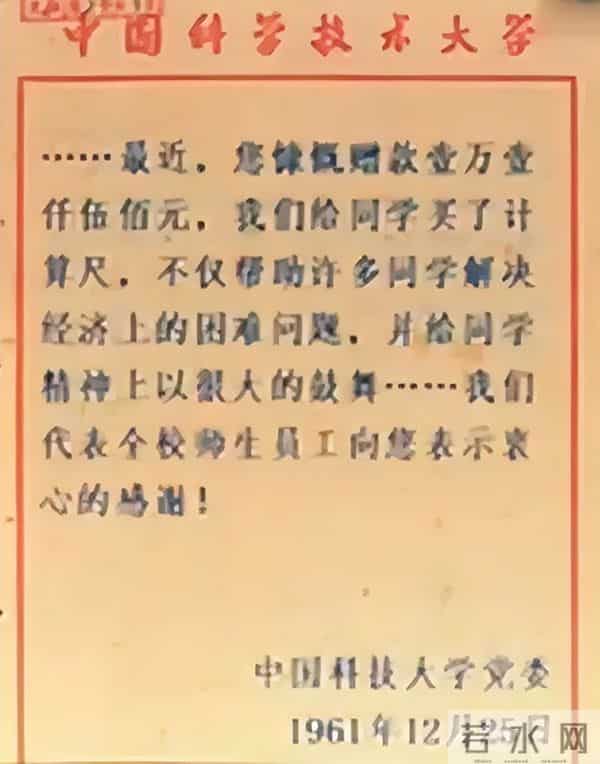 中国科学技术大学
……最近，您慷慨赠款壹万壹
仟伍佰元，我们给同学买了计
算尺，不仅帮助许多同学解决
经济上的困难问题，并给同学
精神上以很大的鼓舞……我们
代表全校师生员工向您表示衷
心的感谢！
中国科技大学党委
1961年12月25日
若水网